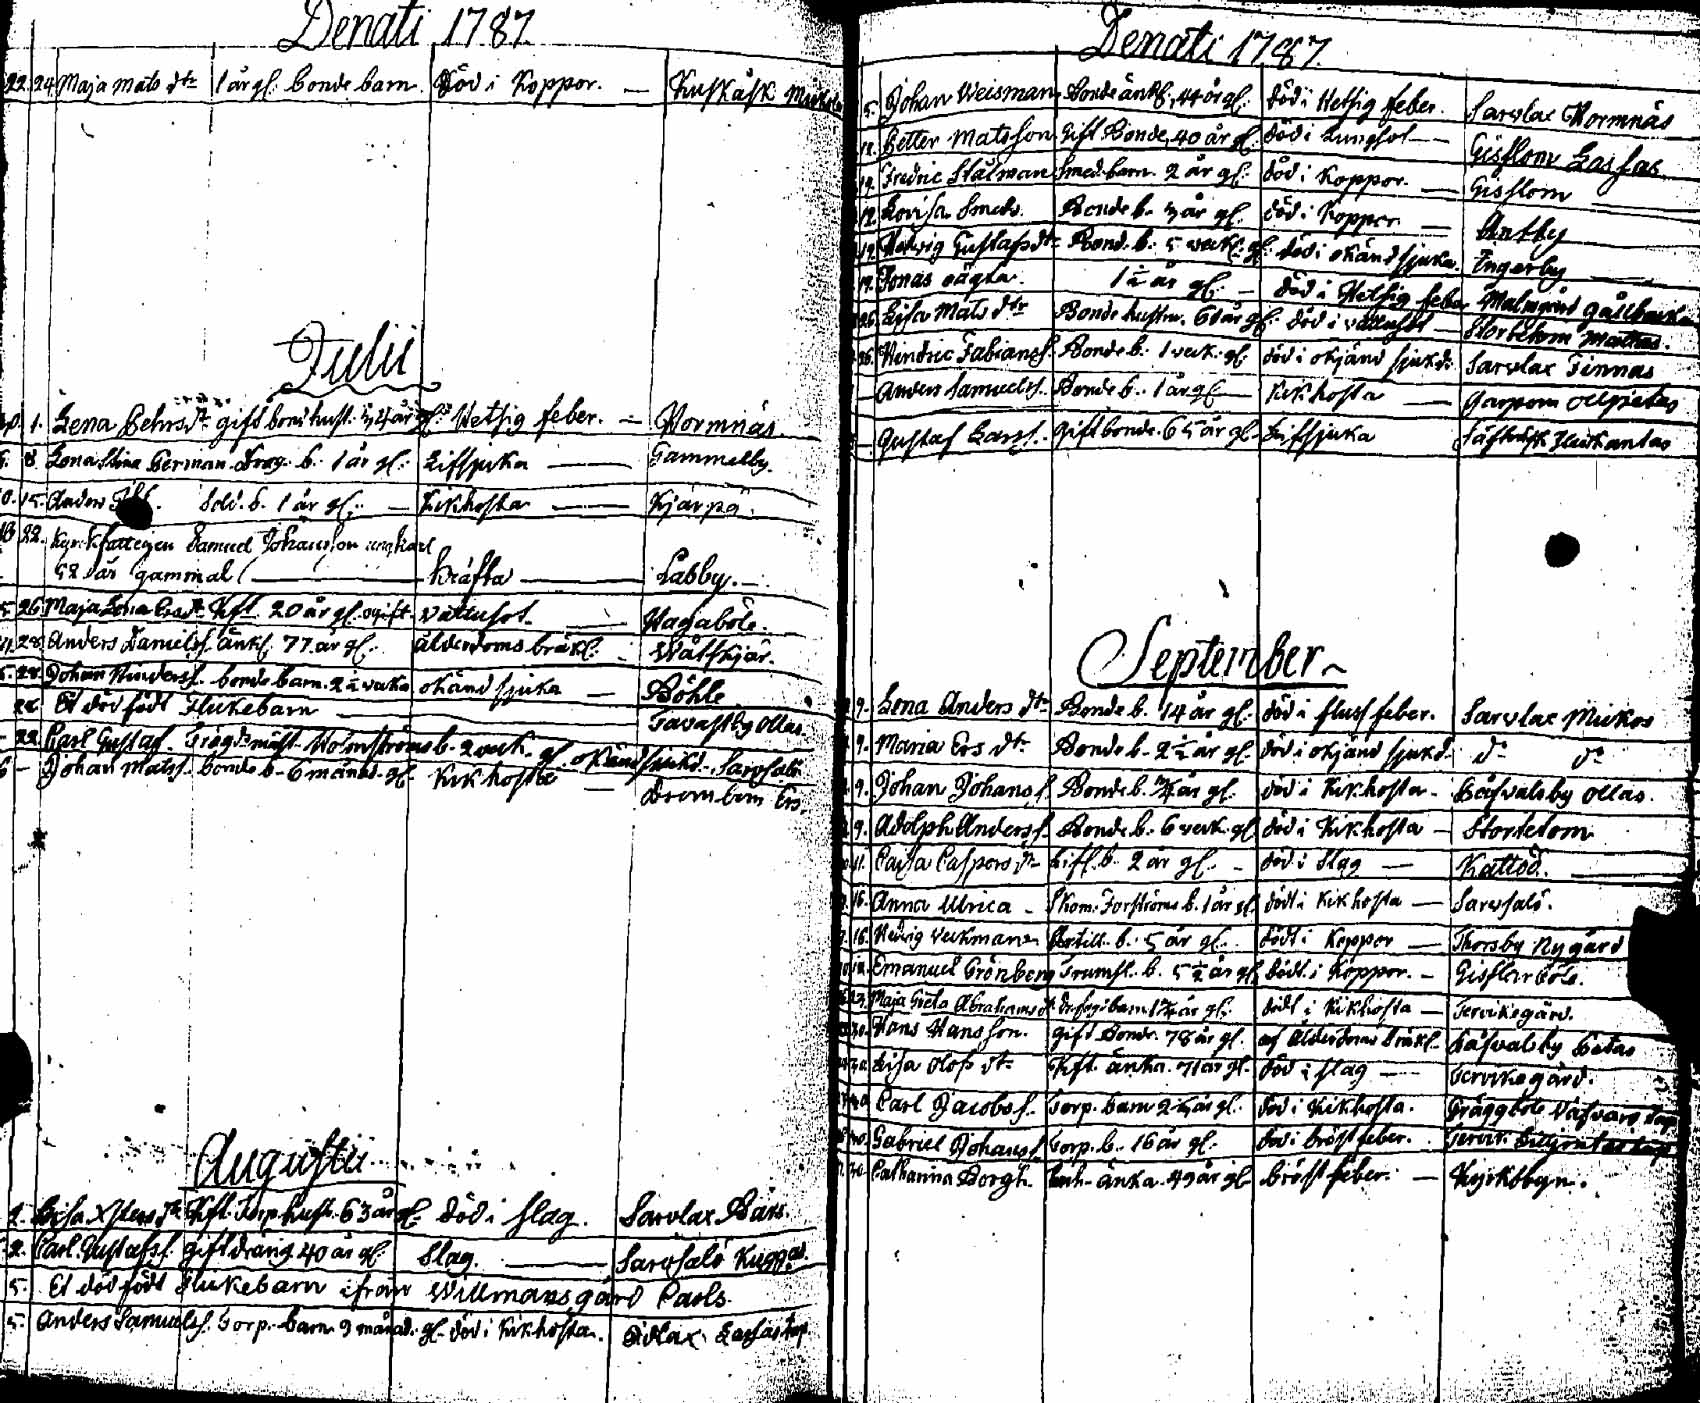 Denati 1787.
22. 24. Maja Mats dtr 1 år gl. bonde barn. död i Koppor. — Kuskåsk
Julii
1. Lena Pehrs dtr gift bond. hust. år gl. Hetsig feber. — Wormnäs.
8. Lona Stina Berman Drag. b. 1 år gl. Lifsjuka — Gammelby.
15. Anders Sold. b. 1 år gl. — Kikhosta — Kjärpä.
18 22. Kyrkfattigen Samuel Johansson ungkarl
52 år gammal — kräfta — Labby. —
26. Maja Lena Ers dtr Kft. 20 år gl. ogift. Vattusot. — Hagaböle.
28. Anders Danielss. änkl. 77 år gl. ålderdoms bräkl. Wåtskjär.
28. Johan Hinderss. bonde barn. 2 ½ veka okänd sjuka — Böhle
28. Et dödfödt Flickebarn — Tavastby Ollas.
22. Carl Gustaf. Holmströms b. 2 veck. gl. okänd sjukd. Sarfsalö
— Johan Matss. bonde b. 6 månad. gl. Kikhosta — Drombom Ers.
Augustii
2. Kft. Torp. hust. 63 år gl. död i slag. Sarvlax Bärs.
2. Carl Gustafss. gift dräng 40 år gl. Slag. — Sarfsalö Kuggas.
5. Et dödfödt Flickebarn ifrån Willmansgård Carls.
5. Anders Samuelss. Torp. barn 9 månad. gl. död i Kikhosta. Tidlax Lassas torp
Denati 1787.
5. Johan Weisman Bonde änkl. 44 år gl. död i Hetsig feber. Sarvlax Hormnäs
12. Petter Matsson Gift Bonde, 40 år gl. död i Lungsot — Gislom Lassas
19. Fredric Stålman Smed. barn. 2 år gl. död i Koppor. — Gislom
12. Lovisa Smeds. Bonde b. 3 år gl. död i Koppor — Antby
19. Hedvig Gustafs dtr Bond. b. 5 veck. gl. död i okänd sjuka. Ingerby —
19. Jonas oägta. 1 ½ år gl. — död i Hetsig feber Malmgård
26. Lisa Mats dtr Bonde hustru. 60 år gl. död i vattusot — Stortelom Mattas.
26. Hindric Fabianss. Bonde b. 1 veck. gl. död i okjänd sjukd. Sarvlax Finnas
— Anders Samuelss. Bonde b. 1 år gl. — Kikhosta — Garpom
— Gustaf Larss. Gift bonde. 65 år gl. Lifsjuka
September
9. Lena Anders dtr Bonde b. 14 år gl. död i fluss feber. Sarvlax Mickos
9. Maria Ers dtr Bonde b. 2 ½ år gl. död i okjänd sjukd. do do
9. Johan Johanss. Bonde b. ¾ år gl. död i Kikhosta. Båfvalsby Ollas.
9. Adolph Anderss. Bonde b. 6 veck. gl. död i Kikhosta — Stortelom
11. Caisa Caspers dtr b. 2 år gl. — död i Slag — Kättöd. —
16. Anna Ulrica — Skom. Forströms b. 1 år gl. död i Kikhosta — Sarvsalö.
16. Hedvig Weckman b. 5 år gl. död i Koppor — Thorsby Nygård
Emanuel Grönberg Trumsl. b. 5 ½ år gl. död i Koppor. — Gislarböle.
23. Maja Greta Abrahams dtr barn 1 ¾ år gl. död i Kikhosta — Tervikegård.
30. Hans Hansson. gift Bonde. 78 år gl. af Ålderdoms bräkl. Båfvalsby Betas
30. Lisa Olofs dtr Kft. änka. 71 år gl. död i slag — Tervikegård.
30. Carl Jacobss. Torp. barn 2 ½ år gl. död i Kikhosta. Gräggböle
30. Gabriel Johanss. Torp. b. 16 år gl. död i bröst feber. Tervik
30. Catharina Borgh. änka. 49 år gl. bröst feber. — Kyrkobyn.